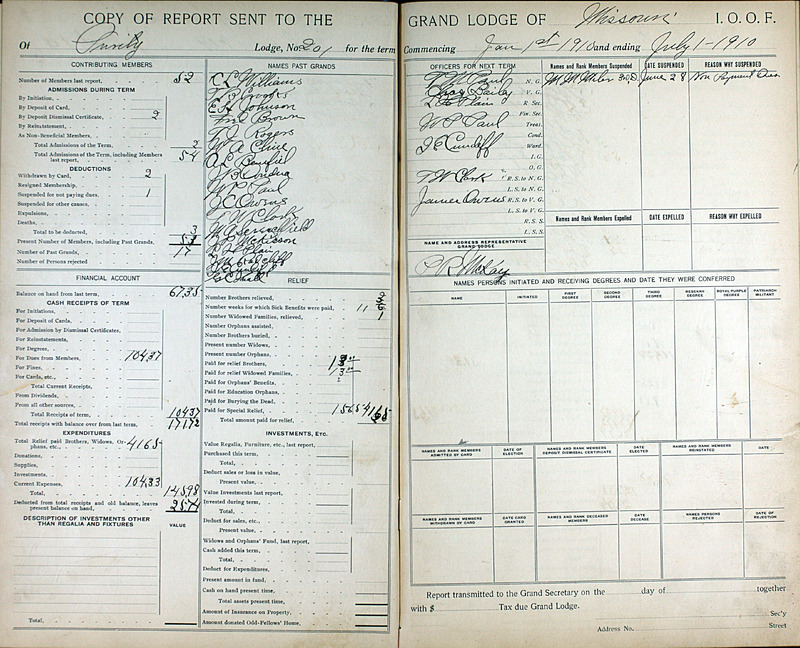 COPY OF REPORT SENT TO THE
Of Purity Lodge, No. 201 for the term
CONTRIBUTING MEMBERS
Number of Members last report, 52
ADMISSIONS DURING TERM
By Initiation,
By Deposit of Card,
By Deposit Dismissal Certificate, 2
By Reinstatement,
As Non-Beneficial Members,
Total Admissions of the Term, 2
Total Admissions of the Term, including Members last report, 54
DEDUCTIONS
Withdrawn by Card, 2
Resigned Membership,
Suspended for not paying dues, 1
Suspended for other causes,
Expulsions,
Deaths,
Total to be deducted, 3
Present Number of Members, including Past Grands, 51
Number of Past Grands, 17
Number of Persons rejected
NAMES PAST GRANDS
Williams
E H Johnson
Brown
T J Rogers
W A Cline
W P Paul
J C Owens
T W Clark
McKisson
FINANCIAL ACCOUNT
Balance on hand from last term, 6735
CASH RECEIPTS OF TERM
For Initiations,
For Deposit of Cards,
For Admission by Dismissal Certificates,
For Reinstatements,
For Degrees,
For Dues from Members, 10437
For Fines,
For Cards, etc.,
Total Current Receipts,
From Dividends,
From all other sources,
Total Receipts of term, 10437
Total receipts with balance over from last term, 17172
EXPENDITURES
Total Relief paid Brothers, Widows, Orphans, etc., 4165
Donations,
Supplies,
Investments,
Current Expenses, 10433
Total, 14598
Deducted from total receipts and old balance, leaves present balance on hand, 2574
DESCRIPTION OF INVESTMENTS OTHER THAN REGALIA AND FIXTURES
VALUE
Total,
RELIEF
Number Brothers relieved,
Number weeks for which Sick Benefits were paid, 11
Number Widowed Families, relieved, 1
Number Orphans assisted,
Number Brothers buried,
Present number Widows,
Present number Orphans,
Paid for relief Brothers,
Paid for relief Widowed Families,
Paid for Orphans' Benefits,
Paid for Education Orphans,
Paid for Burying the Dead,
Paid for Special Relief, 1565
Total amount paid for relief,
INVESTMENTS, ETC.
Value Regalia, Furniture, etc., last report,
Purchased this term,
Total,
Deduct sales or loss in value,
Present value,
Value Investments last report,
Invested during term,
Total,
Deduct for sales, etc.,
Present value,
Widows and Orphans' Fund, last report,
Cash added this term,
Total,
Deduct for Expenditures,
Present amount in fund,
Cash on hand present time,
Total assets present time,
Amount of Insurance on Property,
Amount donated Odd-Fellows' Home,
GRAND LODGE OF Missouri I. O. O. F.
Commencing Jan 1st 1910 and ending July 1-1910
OFFICERS FOR NEXT TERM
Paul N. G.
Bailey V. G.
Plain R. Sec.
Fin. Sec.
W P Paul Treas.
Cond.
J E Cundiff Ward.
I. G.
O. G.
T W Clark R. S. to N. G.
L. S. to N. G.
James Owens R. S. to V. G.
L. S. to V. G.
R. S. S.
L. S. S.
NAME AND ADDRESS REPRESENTATIVE GRAND LODGE
McKay
Names and Rank Members Suspended
DATE SUSPENDED
REASON WHY SUSPENDED
June 28 Non Payment Dues
Names and Rank Members Expelled
DATE EXPELLED
REASON WHY EXPELLED
NAMES PERSONS INITIATED AND RECEIVING DEGREES AND DATE THEY WERE CONFERRED
NAME
INITIATED
FIRST DEGREE
SECOND DEGREE
THIRD DEGREE
REBEKAH DEGREE
ROYAL PURPLE DEGREE
PATRIARCH MILITANT
NAMES AND RANK MEMBERS ADMITTED BY CARD
DATE OF ELECTION
NAMES AND RANK MEMBERS DEPOSIT DISMISSAL CERTIFICATE
DATE ELECTED
NAMES AND RANK MEMBERS REINSTATED
DATE
NAMES AND RANK MEMBERS WITHDRAWN BY CARD
DATE CARD GRANTED
NAMES AND RANK DECEASED MEMBERS
DATE DECEASE
NAMES PERSONS REJECTED
DATE OF REJECTION
Report transmitted to the Grand Secretary on the day of together
with $ Tax due Grand Lodge.
Sec'y
Address No. Street